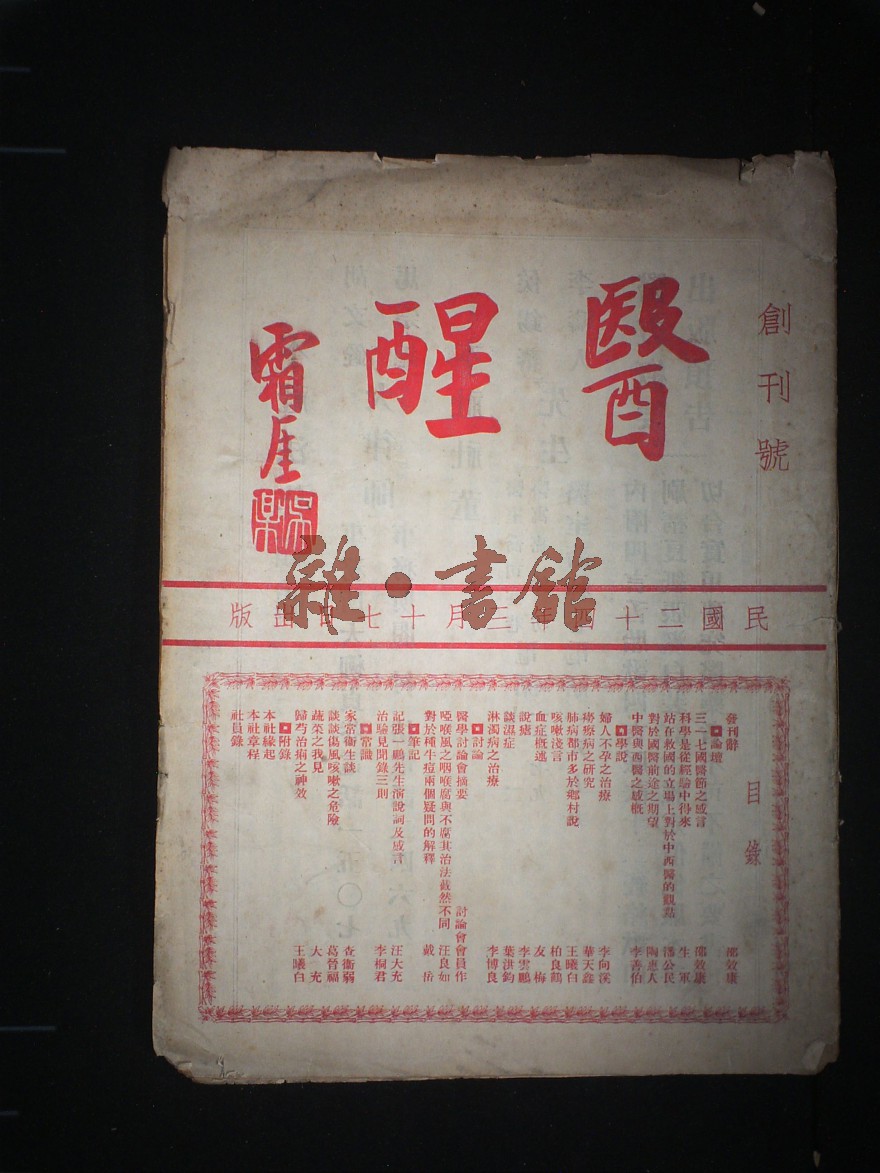 創刊號
醫醒
霜厓
吳梅
民國二十四年三月十七日出版
雜·書館
目錄
發刊辭 邵效康
論壇
三一七國醫節之感言 邵效康
科學是從經驗中得來 生軍
站在救國的立場上對於中西醫的觀點 潘公民
對於國醫前途之期望 陶惠人
中醫與西醫之感概 李善伯
學說
婦人不孕之治療 李向溪
癆瘵病之研究 華天鑫
肺病都市多於鄉村說 王曦白
咳嗽淺言 柏良鷓
血症概述 友梅
說瘧 李雲鵬
談濕症 葉洪鈞
淋濁病之治療 李博良
討論
醫學討論會摘要 討論會會員作
啞喉風之咽喉腐與不腐其治法截然不同 汪良如
對於種牛痘兩個疑問的解釋 戴岳
筆記
記張一鵬先生演說詞及感言 汪大充
治驗見聞錄三則 李桐君
常識
家常衞生談 查衞弱
談談傷風咳嗽之危險 葛晉福
蔬菜之我見 大充
歸芍治病之神效 王曦白
附錄
本社緣起
本社章程
社員錄